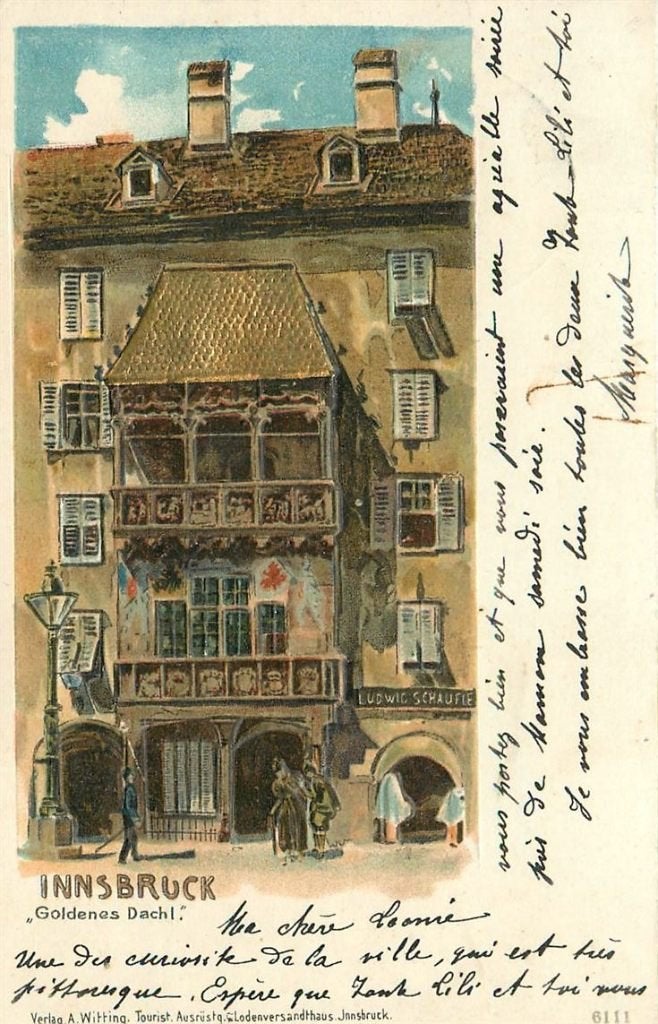 LUDWIG SCHAUFLE
INNSBRUCK
„Goldenes Dachl."
Ma chère Léonie
Une des curiosité de la ville, qui est très
pittoresque. Espère que Tante Lili et toi vous
vous portez bien et que vous passeraient une agréable soirée
près de Maman samedi soir.
Je vous embrasse bien toutes les deux Tante Lili et toi
Marguerite
Verlag A. Witting, Tourist. Ausrüstg. & Lodenversandthaus Jnnsbruck.
6111